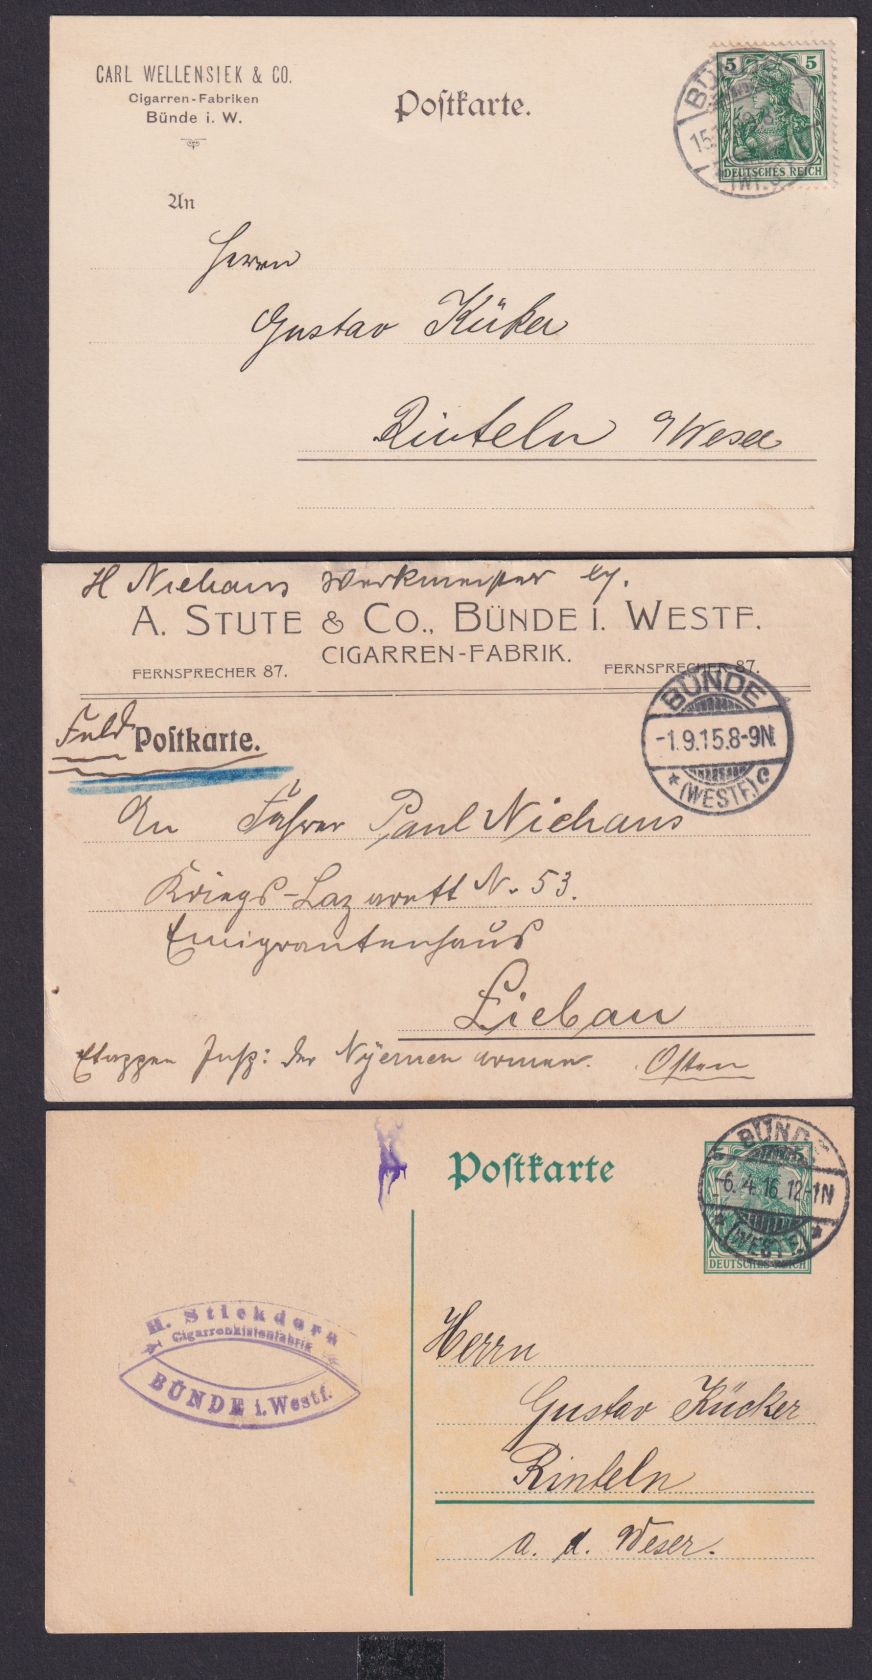 CARL WELLENSIEK & CO.
Cigarren-Fabriken
Bünde i. W.
Postkarte.
5 5
DEUTSCHES REICH
An
Herrn
Gustav Küker
Rinteln a/Weser
H Niehaus Werkmeister
A. STUTE & CO., BÜNDE I. WESTF.
CIGARREN-FABRIK.
FERNSPRECHER 87. FERNSPRECHER 87.
Feld Postkarte.
BÜNDE
-1.9.15.8-9N.
* (WESTF) c
An Fahrer Paul Niehaus
Kriegs-Lazarett N. 53.
Emigrantenhaus
Liebau
Etappen Insp: der Njemen armee. Osten
Postkarte
BÜNDE
-6.4.16.12-1N
* (WESTF) *
DEUTSCHES REICH
H. Stickdorn
Cigarrenkistenfabrik
BÜNDE i. Westf.
Herrn
Gustav Kücker
Rinteln
a. d. Weser.